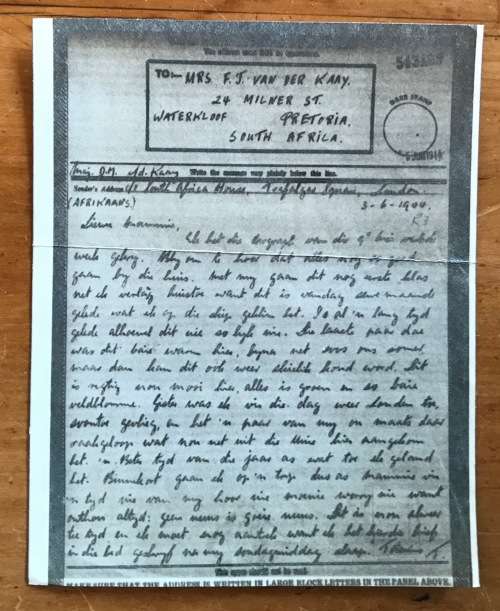 TO:- MRS F.J. VAN DER KAAY.
24 MILNER ST.
WATERKLOOF PRETORIA.
SOUTH AFRICA.
Write the message very plainly below this line.
Sender's Address c/o South Africa House, Trafalgar Square, London.
(AFRIKAANS) 3-6-1944.
Liewe Mammie,
Ek het die van die
weke gekry. Bly om te hoor dat alles nog so goed
gaan by die huis. Met my gaan dit nog eerste klas
net ek verlang huistoe want dit is vandag sewe maande
gelede wat ek op die skip geklim het. Is al 'n lang tyd
gelede alhoewel dit nie so lyk nie. Die laaste paar dae
was dit baie warm hier, byna net soos ons somer
maar dan kan dit ook weer skielik koud word. Dit
is regtig nou mooi hier, alles is groen en so baie
veldblomme. Gister was ek vir die dag weer Londen toe,
en het 'n paar van my ou maats daar
raakgeloop wat nou net uit die Unie hier aangekom
het. 'n Beter tyd van die jaar as wat toe ek geland
het. Binnekort gaan ek op 'n dus as mammie vir
'n tyd nie van my hoor nie moenie worry nie want
onthou altyd: geen nuus is goeie nuus. Dit is nou alweer
tee tyd en ek moet nog aantrek want ek het hierdie brief
in die bed geskryf na my sondagmiddag slapie.
This space should not be used.
MAKE SURE THAT THE ADDRESS IS WRITTEN IN LARGE BLOCK LETTERS IN THE PANEL ABOVE.